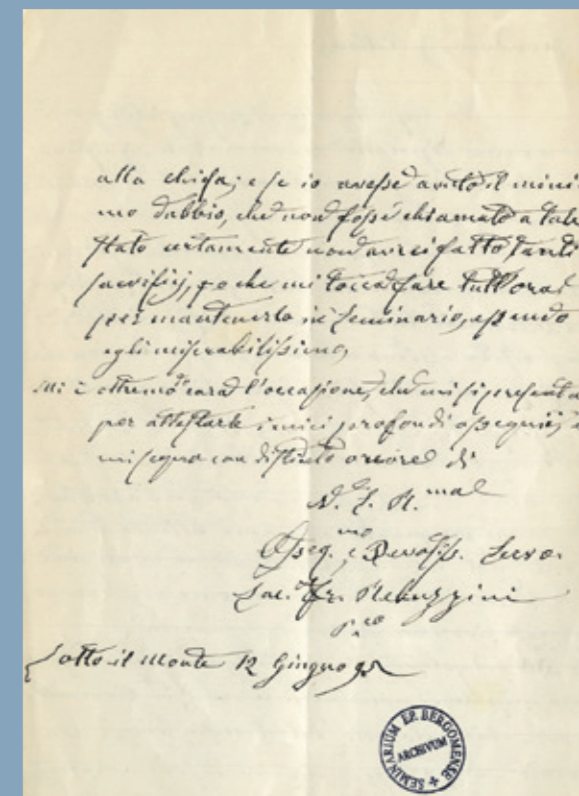 alla chiesa; e se io avessi avuto il mini
mo dubbio, che non fosse chiamato a tale
stato certamente non avrei fatto tanti
sacrifizj, e che mi tocca fare tutt'ora
per mantenerlo in Seminario, essendo
egli miserabilissimo,
Mi è oltremodo cara l'occasione, che mi si presenta
per attestarle i miei profondi ossequii, e
mi segno con distinto onore di
V. S. R.ma
Osseq.mo e Devotiss. Servo.
Sac. Fr. Rebuzzini
P.co
Sotto il Monte 12 Giugno 92
SEMINARIUM EP. BERGOMENSE
ARCHIVUM